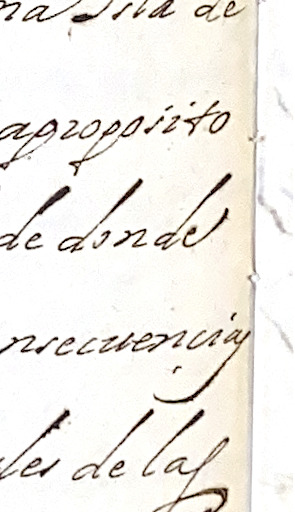 na Isla de
aproposito
de donde
nsecuencias
les de las